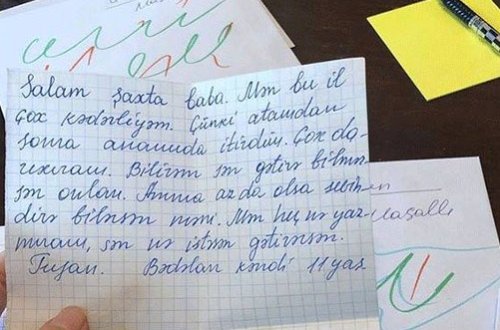 Salam şaxta baba. Mən bu il
Çox kədərliyəm. Çünki atamdan
sonra anamıda itirdim. Çox da-
rıxıram. Bilirəm sən gətirə bilmir-
sən onları. Amma az da olsa sevin-
dirə bilərsən məni. Mən heç nə yaz-
mıram, sən nə istəsən gətirərsən.
Bədəlan kəndi 11 yaş
Masallı